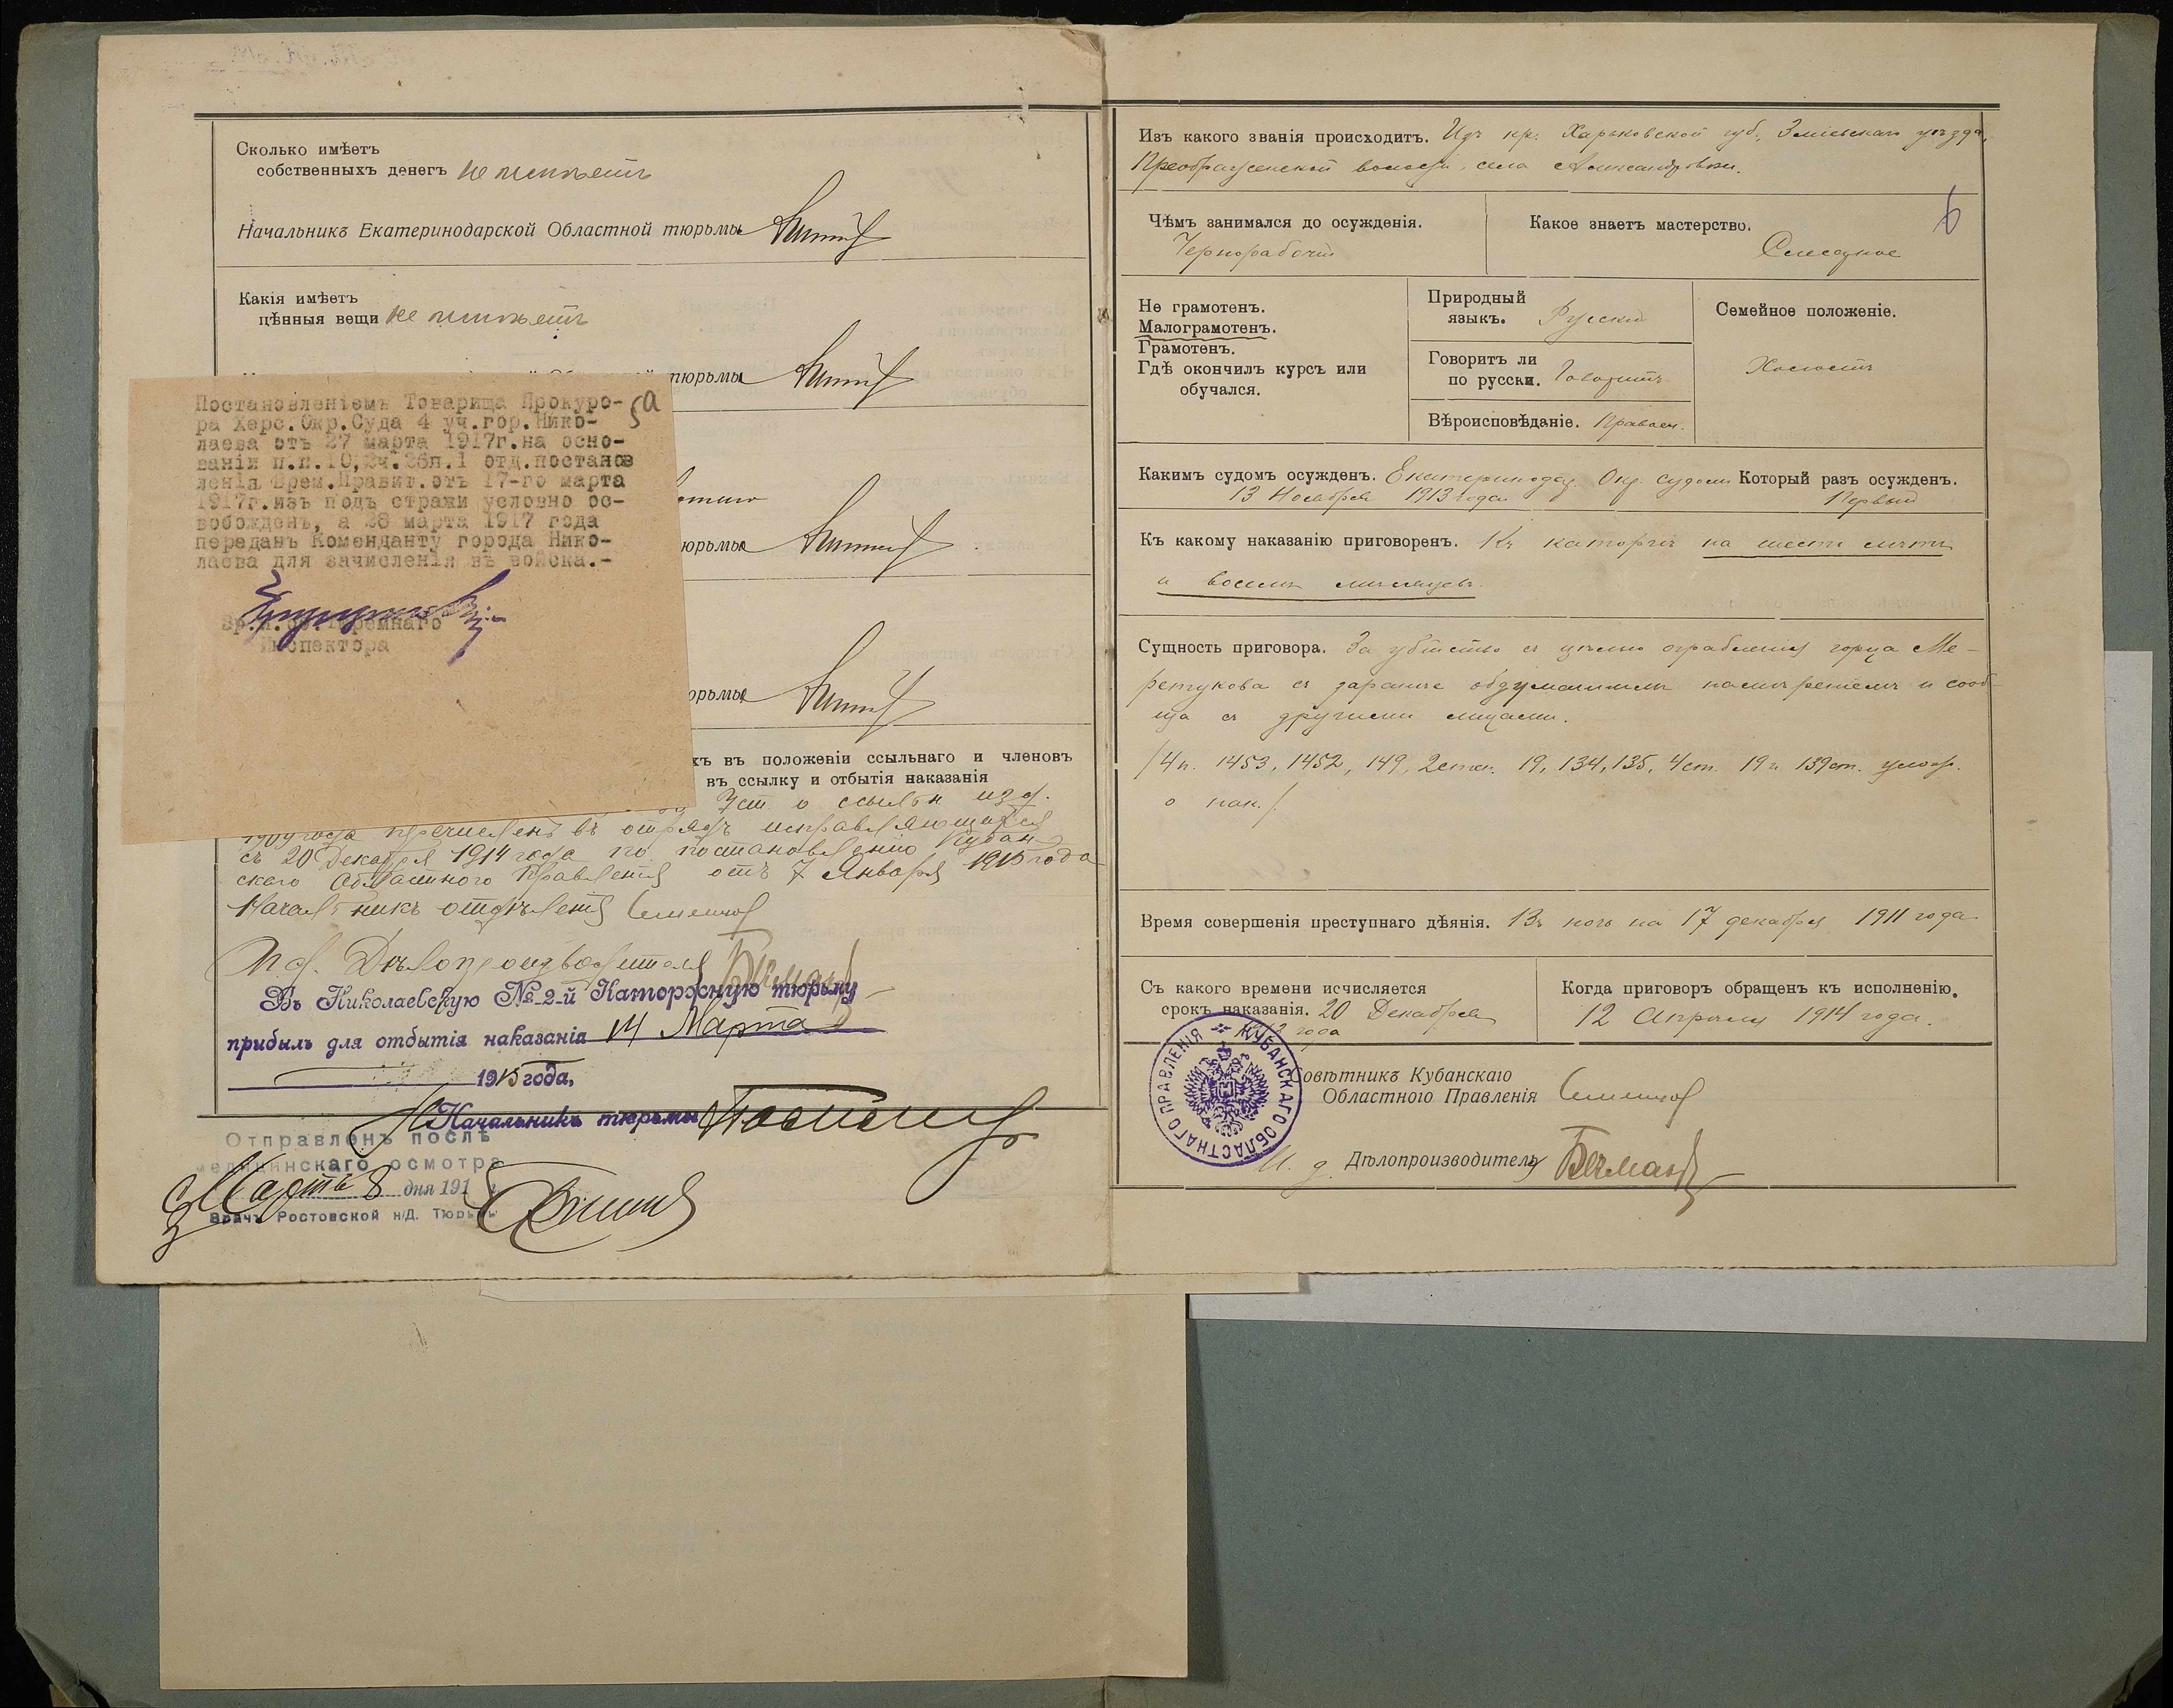 Сколько имѣетъ
собственныхъ денегъ не имѣетъ
Начальникъ Екатеринодарской Областной тюрьмы
Какія имѣетъ
цѣнныя вещи не имѣетъ
тюрьмы
5а
Постановленіемъ Товарища Прокуро-
ра Херс.Окр.Суда 4 уч.гор.Нико-
лаева отъ 27 марта 1917г.на осно-
ваніи п.п.10,2ч.26п.1 отд.постанов
ленія Врем.Правит.отъ 17-го марта
1917г.изъ подъ стражи условно ос-
вобожденъ, а 28 марта 1917 года
переданъ Коменданту города Нико-
лаева для зачисленія въ войска.-
Тюремнаго
Инспектора
юрьмы
орьмы
хъ въ положеніи ссыльнаго и членовъ
въ ссылку и отбытія наказанія
Уст о ссыльн изд.
1909 года перечисленъ въ отрядъ исправляющихся
съ 20 Декабря 1914 года по постановленію Кубан-
скаго Областного Правленія отъ 7 Января 1915 года
Начальникъ отдѣленія
И.д. Дѣлопроизводителя
Въ Николаевскую №-2-й Каторжную тюрьму
прибылъ для отбытія наказанія 14 Марта
1915 года,
Начальникъ тюрьмы
Отправленъ послѣ
медицинскаго осмотра
Мартъ 8 дня 191
Врачъ Ростовской н/Д. Тюрьмы
Изъ какого званія происходитъ. Изъ кр. Харьковской губ., Зміевскаго уѣзда,
Преображенской волости, села Александровки.
6
Чѣмъ занимался до осужденія.
Чернорабочій
Какое знаетъ мастерство.
Слесарное
Не грамотенъ.
Малограмотенъ.
Грамотенъ.
Гдѣ окончилъ курсъ или
обучался.
Природный
языкъ. Русскій
Говоритъ ли
по русски. Говоритъ
Вѣроисповѣданіе. Правосл.
Семейное положеніе.
Холостъ
Какимъ судомъ осужденъ. Екатеринодар. Окр. Судомъ
13 Ноября 1913 года
Который разъ осужденъ.
Первый
Къ какому наказанію приговоренъ. Къ каторгѣ на шесть лѣтъ
и восемь мѣсяцевъ.
Сущность приговора. За убійство съ цѣлью ограбленія горца Ме-
ретукова съ заранѣе обдуманнымъ намѣреніемъ и сооб
ща съ другими лицами.
/4 п. 1453, 1452, 149, 2 степ. 19, 134, 135, 4 ст. 19 и 139 ст. улож.
о нак./
Время совершенія преступнаго дѣянія. Въ ночь на 17 декабря 1911 года
Съ какого времени исчисляется
срокъ наказанія. 20 Декабря
года
Когда приговоръ обращенъ къ исполненію.
12 Апрѣля 1914 года.
КУБАНСКАГО ОБЛАСТНАГО ПРАВЛЕНІЯ
Совѣтникъ Кубанскаго
Областного Правленія
И. д. Дѣлопроизводителя